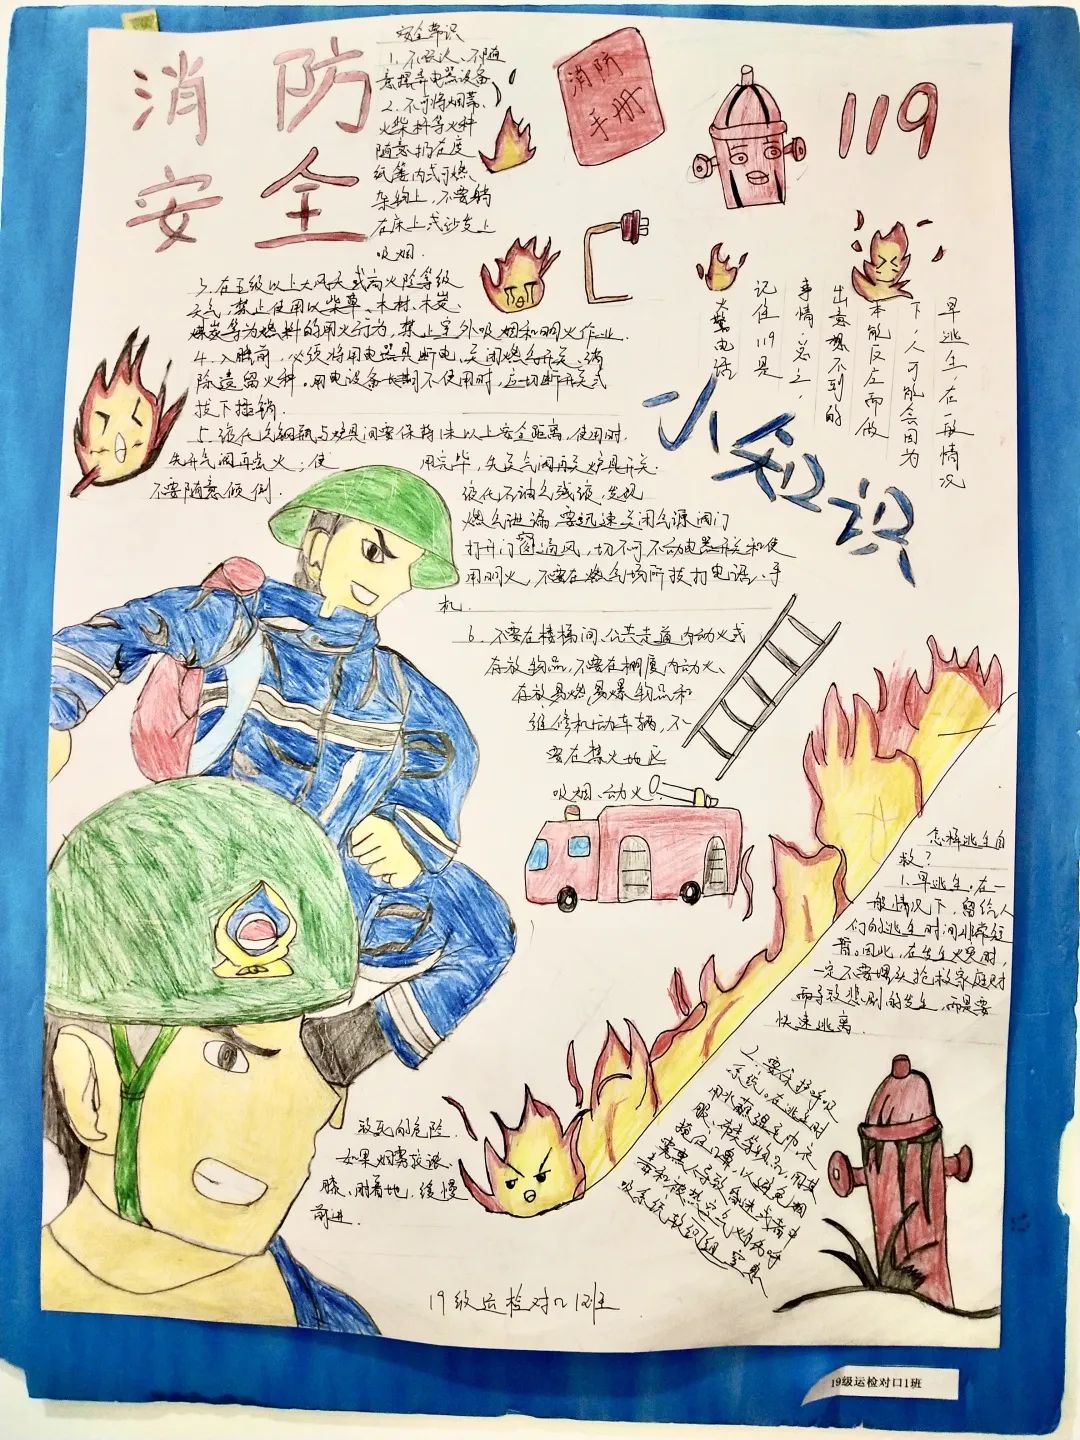 消防
安全
安全常识
1.不私人、不随
意摆弄电器设备
2.不可将烟蒂、
火柴杆等火种
随意扔在废
纸篓内或可燃
杂物上，不要躺
在床上或沙发上
吸烟.
3.在五级以上大风天或高火险等级
天气,禁止使用以柴草、木材、木炭、
煤炭等为燃料的用火行为,禁止室外吸烟和明火作业.
4.入睡前,必须将用电器具断电,关闭燃气开关,消
除遗留火种。用电设备长期不使用时,应切断开关或
拔下插销.
5.液化气钢瓶与炉具间要保持1米以上安全距离,使用时,
先开气阀再点火;使
用完毕,先关气阀再关炉具开关.
不要随意倾倒.
液化石油气残液,发现
燃气泄漏,要迅速关闭气源阀门
打开门窗通风,切不可
电器开关和使
用明火,不要在燃气场所拨打电话、手
机.
6.不要在楼梯间、公共走道内动火或
存放物品,不要在棚厦内动火、
存放易燃易爆物品和
维修机动车辆,不
要在禁火地区
吸烟、动火.
消防
手册
119
早逃生,在一般情况
下,人可能会因为
本能反应而做
出意想不到的
事情总之,
记住119是
火警电话
小知识
怎样逃生自
救?
1.早逃生.在一
般情况下,留给人
们的逃生时间非常短
暂。因此,在发生火灾时,
一定不要埋头抢救家庭财
而导致悲剧的发生,而是要
快速逃离.
2.要保护呼吸
系统。在逃生时
用水蘸湿毛巾、衣
服、布类等物品,用其
掩住口鼻,以避免烟
雾熏人导致昏迷或者中
毒和被热空气灼伤呼
吸系统软组织窒息
致死的危险.
如果烟雾较浓,
膝、肘着地,缓慢
前进.
19级运检对口1班
19级运检对口1班